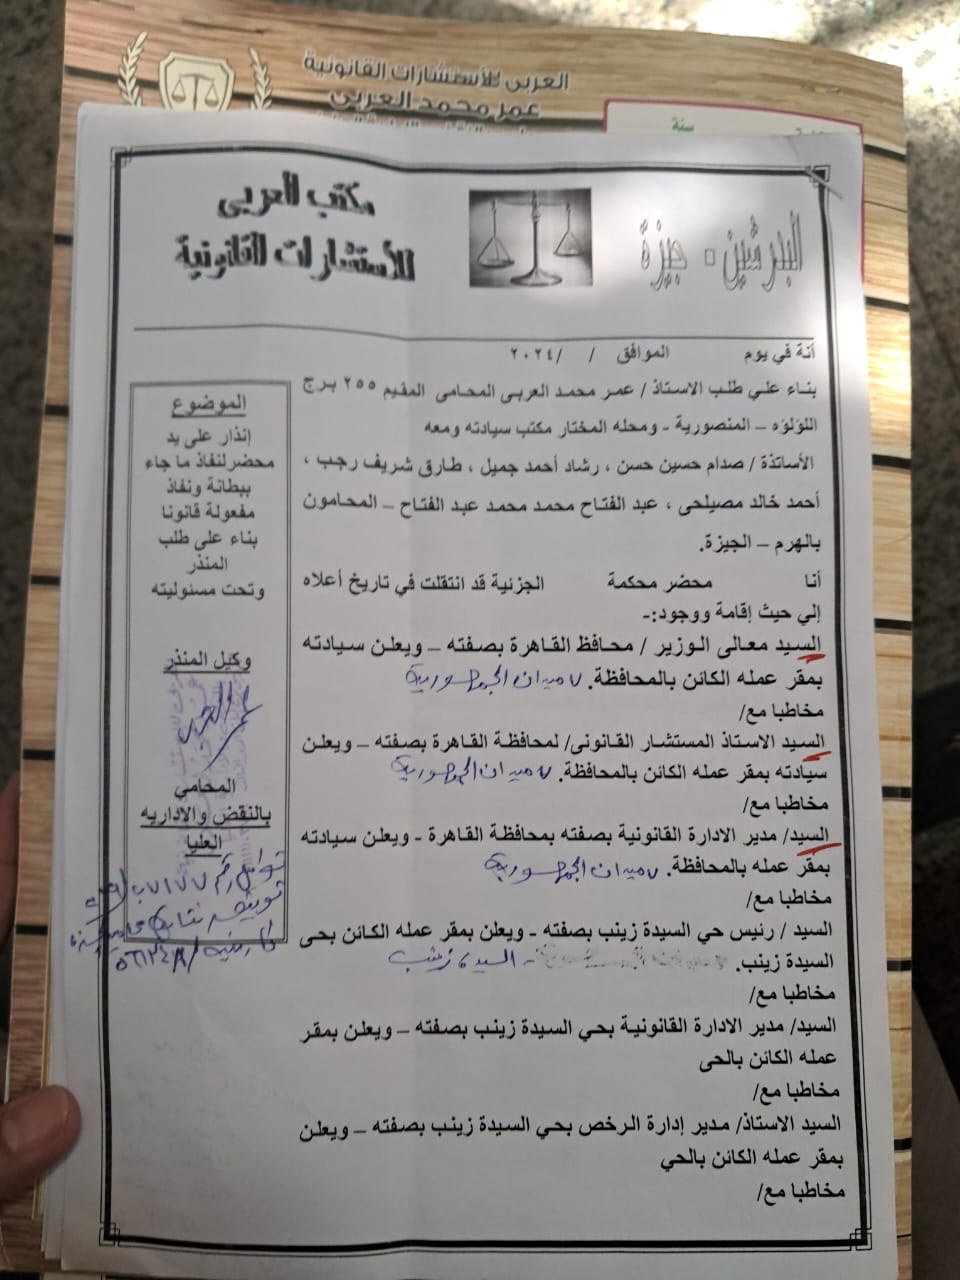 العربى للأستشارات القانونية
عمر محمد العربى
سنة
مكتب العربى
للأستشارات القانونية
البدرشين - جيزة
أنة في يوم الموافق / /٢٠٢٤
بناء علي طلب الاستاذ / عمر محمد العربى المحامى المقيم ٢٥٥ برج
اللؤلؤه – المنصورية - ومحله المختار مكتب سيادته ومعه
الأساتذة / صدام حسين حسن ، رشاد أحمد جميل ، طارق شريف رجب ،
أحمد خالد مصيلحى ، عبد الفتاح محمد محمد عبد الفتاح – المحامون
بالهرم – الجيزة.
أنا محضر محكمة الجزئية قد انتقلت في تاريخ أعلاه
إلي حيث إقامة ووجود:-
السيد معالى الوزير / محافظ القاهرة بصفته – ويعلن سيادته
بمقر عمله الكائن بالمحافظة. ٧ ميدان الجمهورية
مخاطبا مع/
السيد الاستاذ المستشار القانونى/ لمحافظة القاهرة بصفته – ويعلن
سيادته بمقر عمله الكائن بالمحافظة. ٧ ميدان الجمهورية
مخاطبا مع/
السيد/ مدير الادارة القانونية بصفته بمحافظة القاهرة - ويعلن سيادته
بمقر عمله بالمحافظة. ٧ ميدان الجمهورية
مخاطبا مع/
السيد / رئيس حي السيدة زينب بصفته - ويعلن بمقر عمله الكائن بحى
السيدة زينب. - السيدة زينب
مخاطبا مع/
السيد/ مدير الادارة القانونية بحي السيدة زينب بصفته – ويعلن بمقر
عمله الكائن بالحى
مخاطبا مع/
السيد الاستاذ/ مدير إدارة الرخص بحي السيدة زينب بصفته – ويعلن
بمقر عمله الكائن بالحي
مخاطبا مع/
الموضوع
إنذار على يد
محضرلنفاذ ما جاء
ببطانة ونفاذ
مفعولة قانونا
بناء على طلب
المنذر
وتحت مسئوليته
وكيل المنذر
المحامي
بالنقض والاداريه
العليا